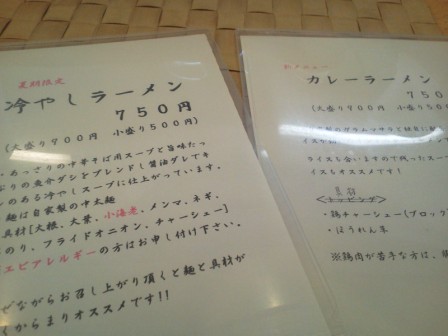 夏期限定
冷やしラーメン
750円
(大盛り900円 小盛り500円)
あっさりの中華そば用スープと旨味たっ
ぷりの魚介ダシとブレンドし醤油ダレでキ
レのある冷やしスープに仕上がっています。
麺は自家製の中太麺
具材[大根、大葉、小海老、メンマ、ネギ、
のり、フライドオニオン、チャーシュー]
エビアレルギーの方はお申し付け下さい。
ぜながらお召し上がり頂くと麺と具材が
くからまりオススメです!!
新メニュー
カレーラーメン
750
(大盛り900円 小盛り50
製のガラムマサラと
イスも合いますので残ったスー
イスもオススメです!
具材
トッピング
・鶏チャーシュー(ブロック)
・ほうれん草
※鶏肉が苦手な方は、